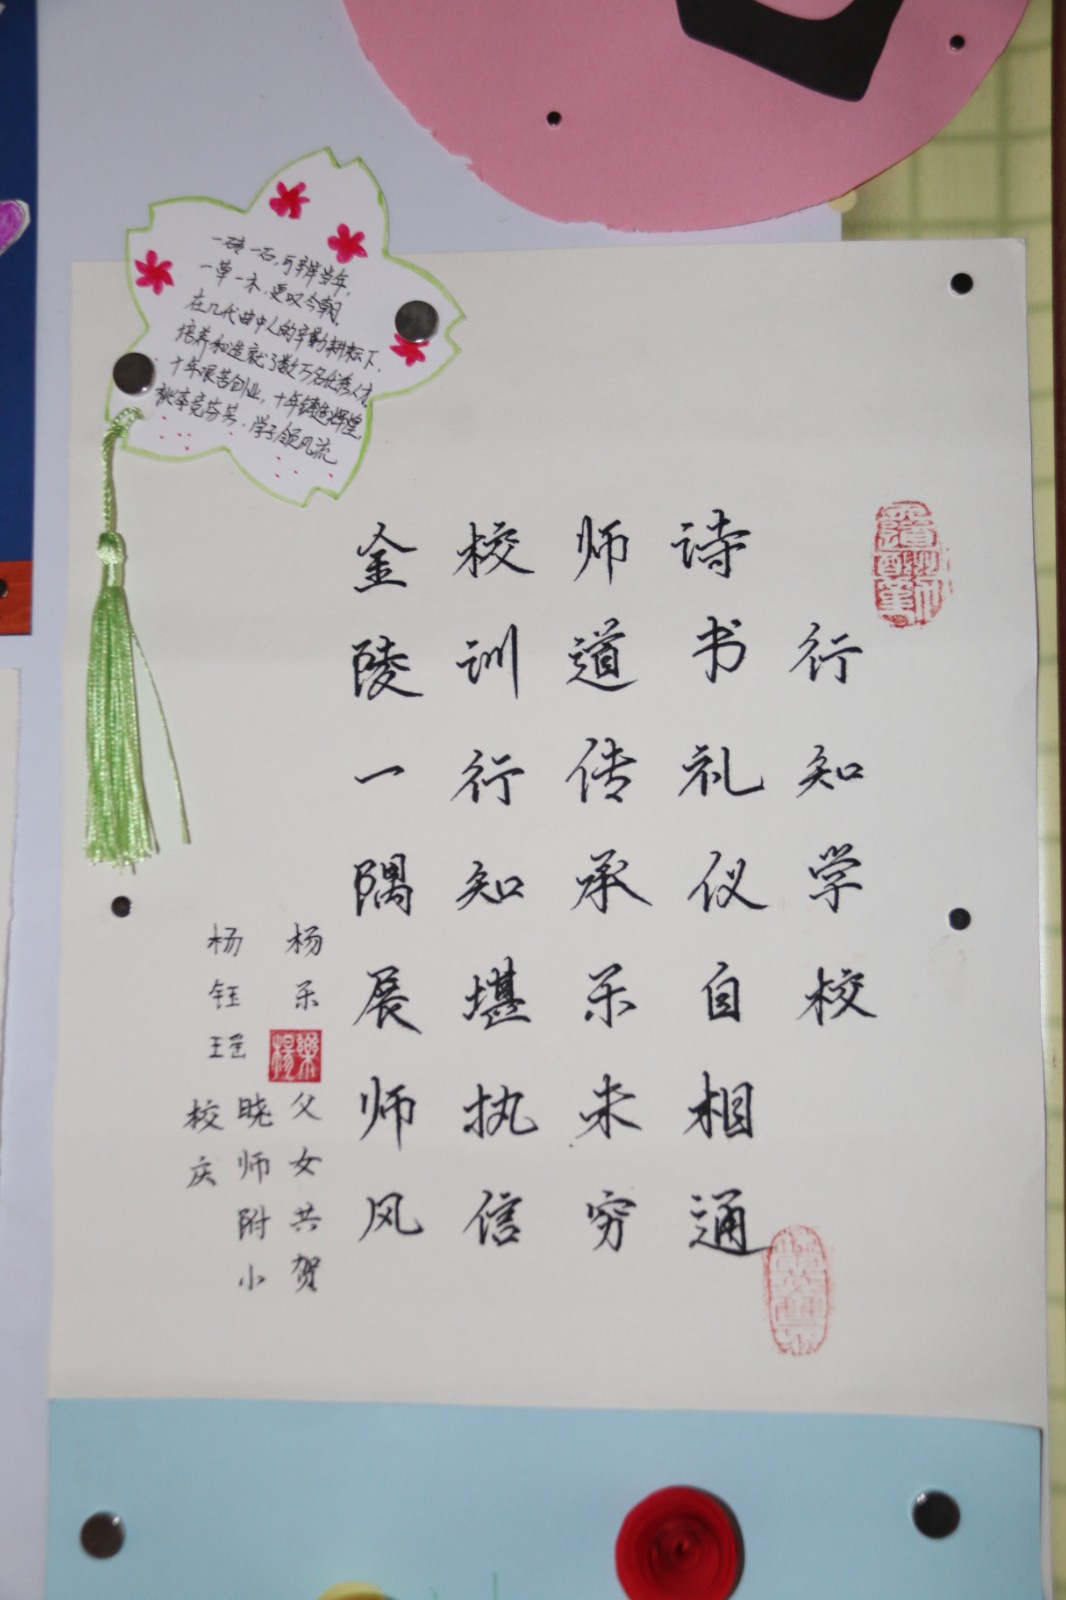 一砖一石，可辨当年，
一草一木，更叹今朝。
在几代曲中人的辛勤耕耘下，
培养和造就了数万名优秀人才
十年艰苦创业，十年铸造辉煌，
桃李竞芬芳，学子领风流
行知学校
诗书礼仪自相通
师道传承乐未穷
校训行知堪执信
金陵一隅展师风
杨乐
杨钰瑶
父女共贺
晓师附小
校庆